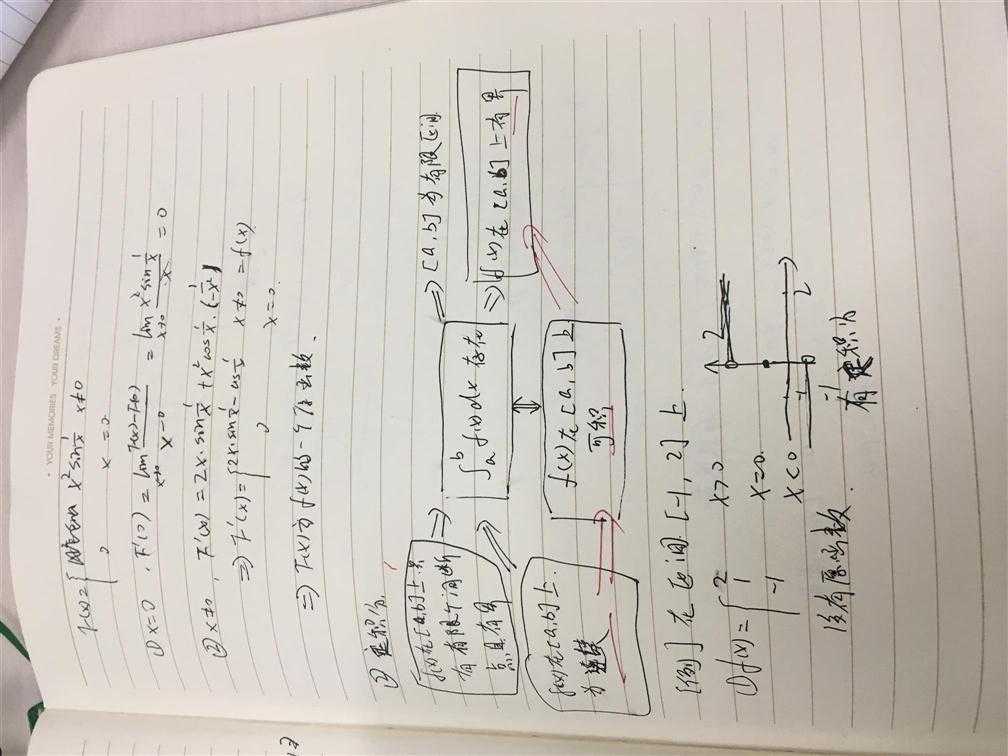 · YOUR MEMORIES · YOUR DREAMS ·
F(x)={ x²sin 1/x x≠0
0 x=0
① x=0, F'(0)=lim x→0 F(x)-F(0)/x-0 = lim x→0 x²sin 1/x / x = 0
② x≠0, F'(x)=2x·sin 1/x + x²cos 1/x·(-1/x²)
⇒ F'(x)={ 2x·sin 1/x - cos 1/x x≠0 =f(x)
0 x=0.
⇒ F(x)为f(x)的一个原函数.
② 定积分.
f(x)在[a,b]上只
有有限个间断
点且有界
⇒
∫ₐᵇ f(x)dx 存在
⇒ [a,b]为有限区间
⇒ f(x)在[a,b]上有界
⇕
f(x)在[a,b]上.
为连续
⇒
f(x)在[a,b]上
可积
[例] 在区间[-1,2]上.
① f(x)={ 2 x>0
1 x=0.
-1 x<0
2
0
2
没有原函数.
有定积分